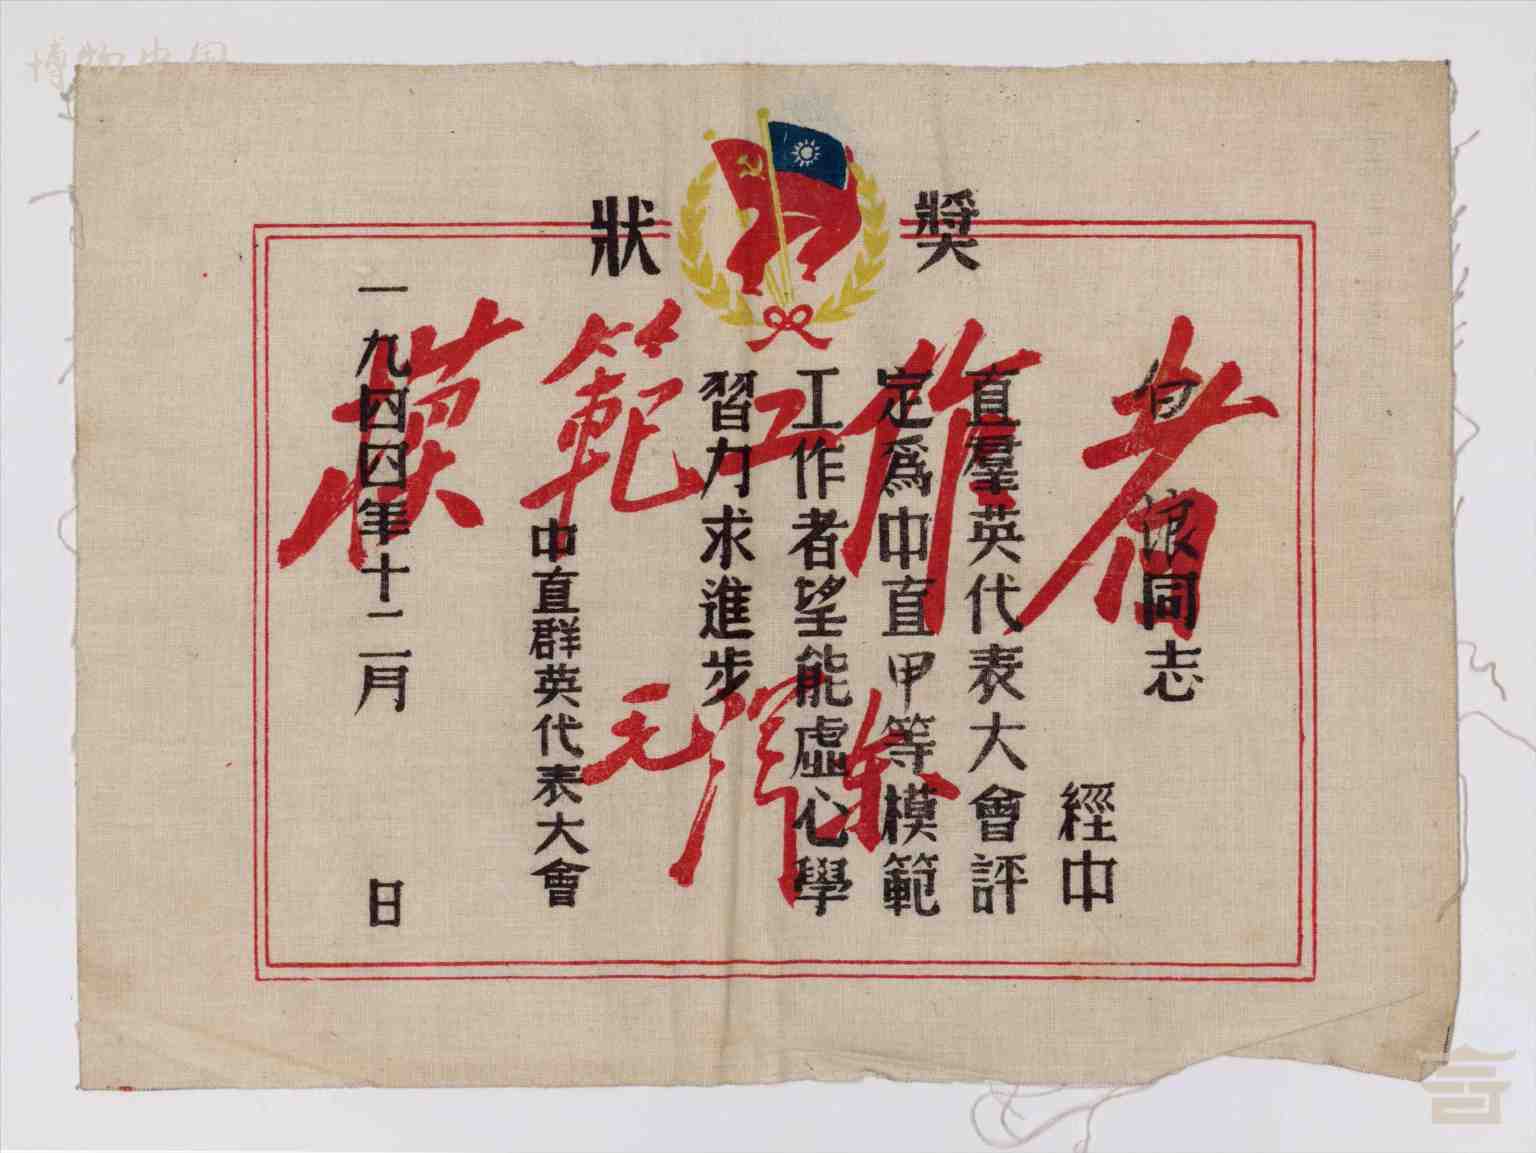 獎狀
白浪同志
經中
直羣英代表大會評
定爲中直甲等模範
工作者望能虛心學
習力求進步
中直群英代表大會
一九四四年十二月 日
模範工作者
毛澤東
博物中国